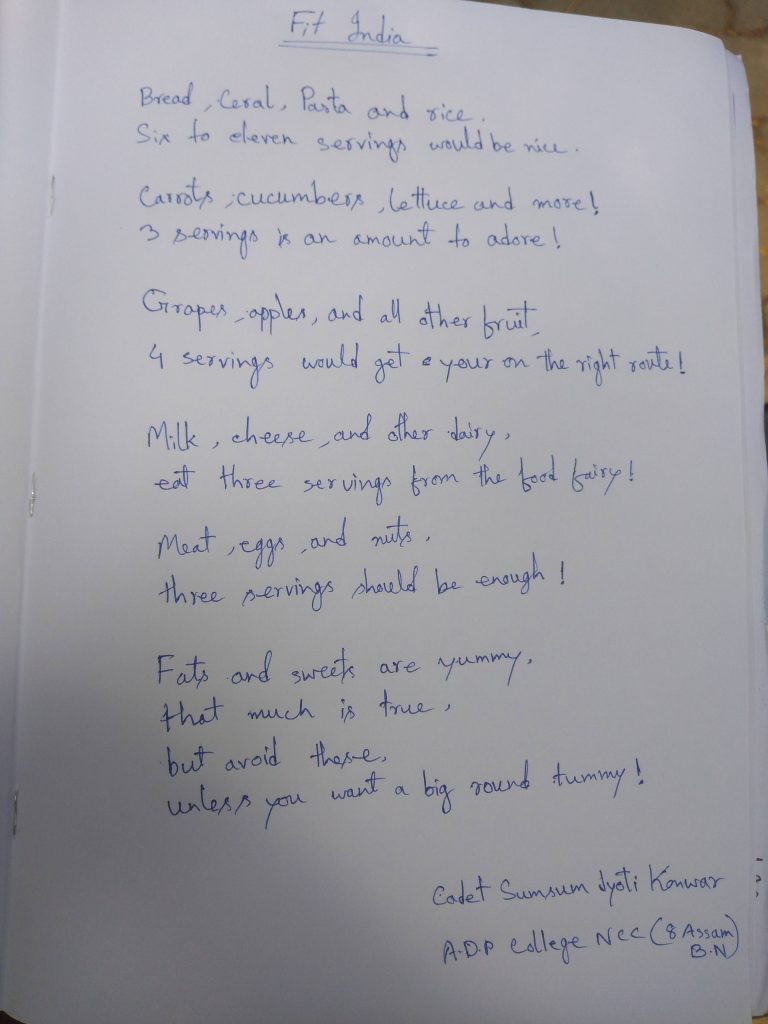 Fit India
Bread, Ceral, Pasta and rice.
Six to eleven servings would be nice.
Carrots, cucumbers, lettuce and more!
3 servings is an amount to adore!
Grapes, apples, and all other fruit,
4 servings would get your on the right route!
Milk, cheese, and other dairy,
eat three servings from the food fairy!
Meat, eggs, and nuts,
three servings should be enough!
Fats and sweets are yummy,
that much is true,
but avoid these,
unless you want a big round tummy!
Cadet Sumsum Jyoti Konwar
A.D.P College NCC (8 Assam
B.N)